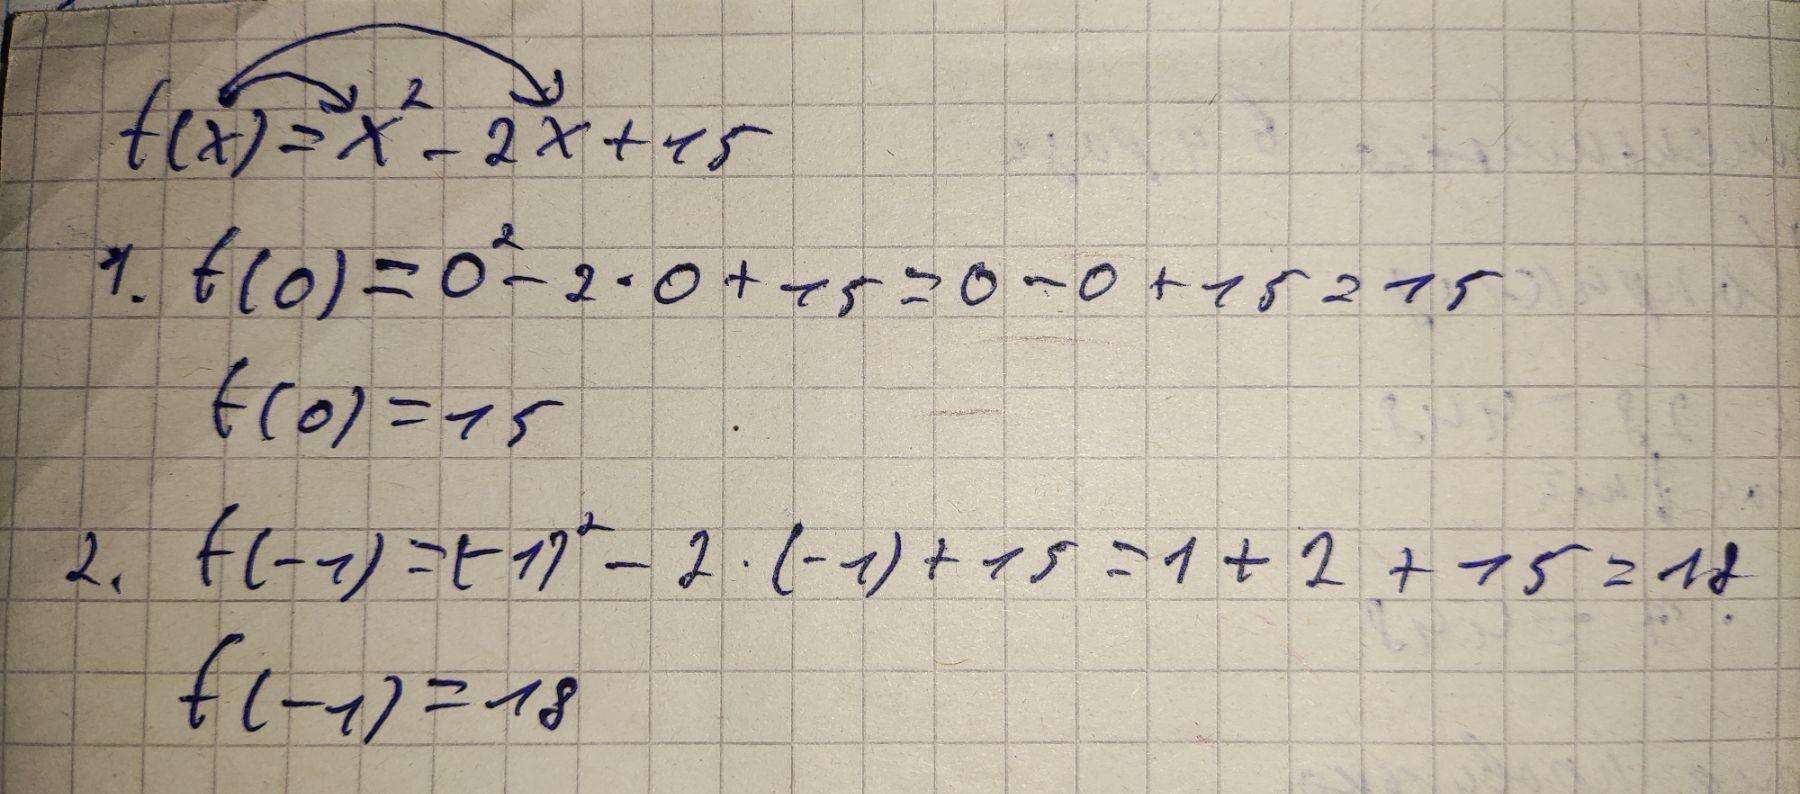 f(x) = x² - 2x + 15
1. f(0) = 0² - 2 · 0 + 15 = 0 - 0 + 15 = 15
f(0) = 15
2. f(-1) = (-1)² - 2 · (-1) + 15 = 1 + 2 + 15 = 18
f(-1) = 18